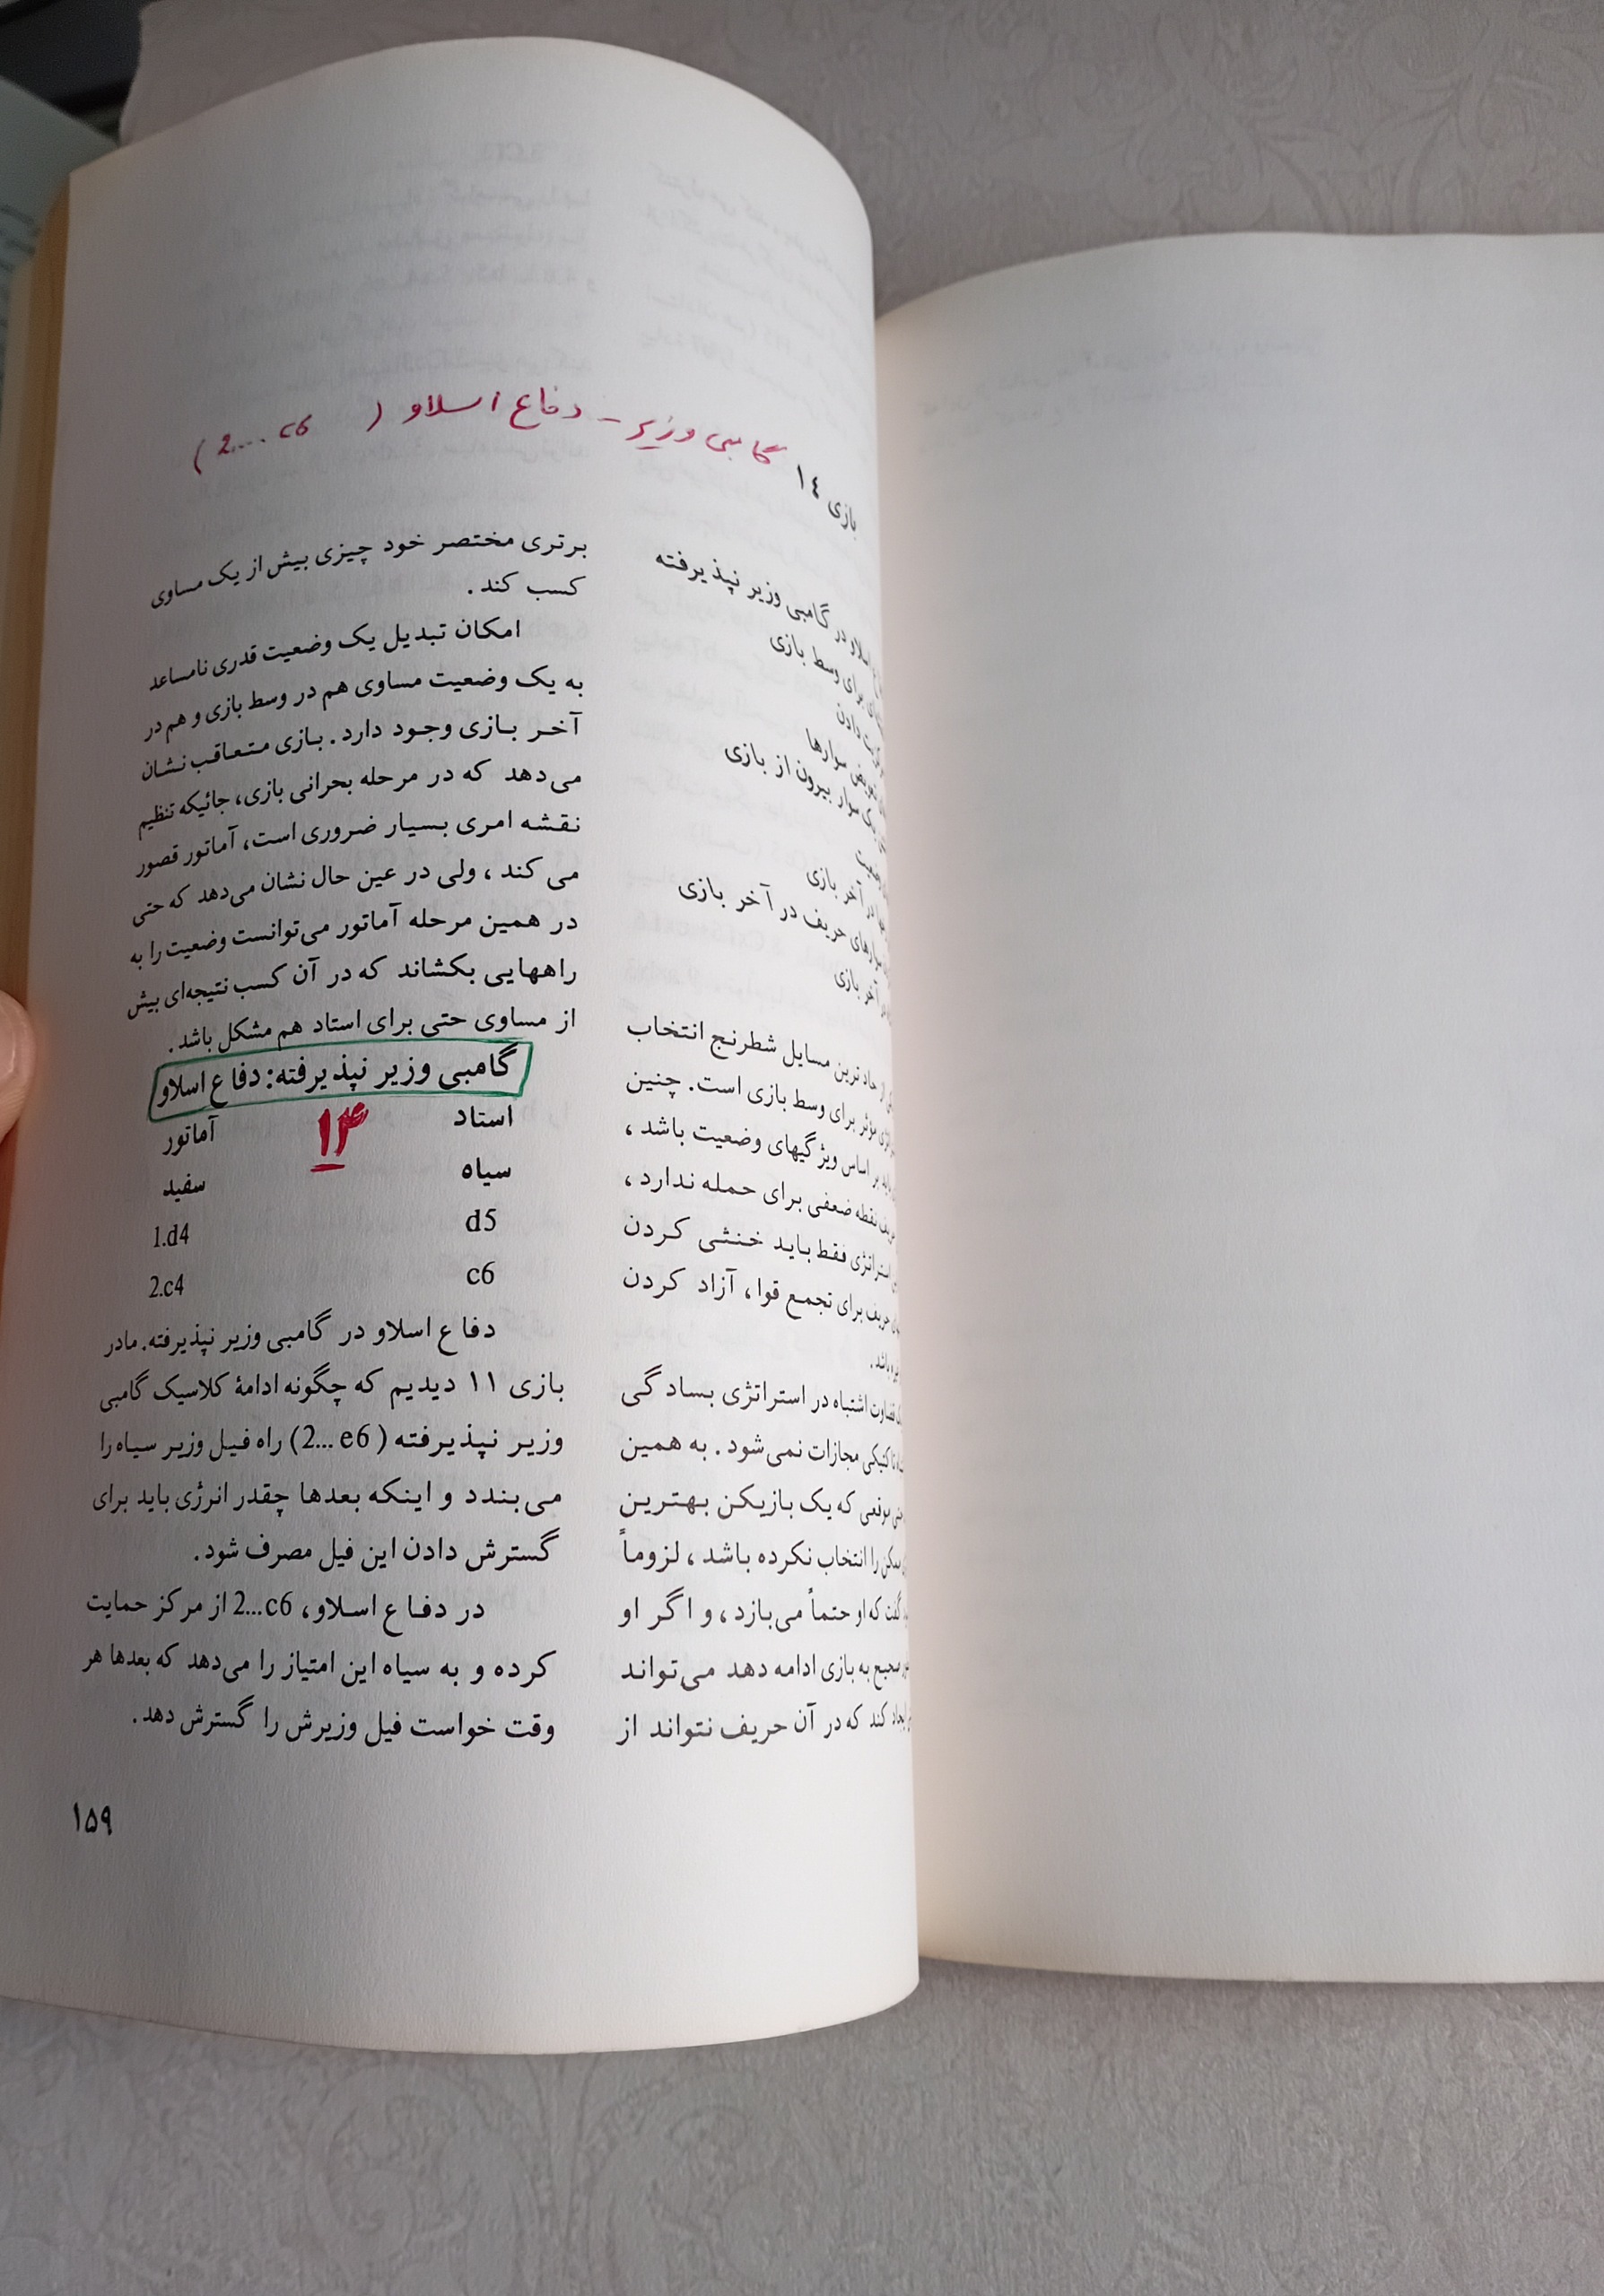 گامبی وزیر - دفاع اسلاو ( 2... c6 )
بازی ١٤
اسلاو در گامبی وزیر نپذیرفته
برای وسط بازی
دادن
تعویض سوارها
یک سوار بیرون از بازی
در آخر بازی
سوارهای حریف در آخر بازی
آخر بازی
حادترین مسایل شطرنج انتخاب
مؤثر برای وسط بازی است. چنین
بر اساس ویژگیهای وضعیت باشد ،
نقطه ضعفی برای حمله ندارد ،
استراتژی فقط باید خنثی کردن
حریف برای تجمع قوا، آزاد کردن
باشد.
قضاوت اشتباه در استراتژی بسادگی
تاکتیکی مجازات نمی‌شود. به همین
موقعی که یک بازیکن بهترین
ممکن را انتخاب نکرده باشد ، لزوماً
گفت که او حتماً می‌بازد، و اگر او
صحیح به بازی ادامه دهد می‌تواند
ایجاد کند که در آن حریف نتواند از
برتری مختصر خود چیزی بیش از یک مساوی
کسب کند .
امکان تبدیل یک وضعیت قدری نامساعد
به یک وضعیت مساوی هم در وسط بازی و هم در
آخر بازی وجود دارد. بازی متعاقب نشان
می‌دهد که در مرحله بحرانی بازی، جائیکه تنظیم
نقشه امری بسیار ضروری است، آماتور قصور
می کند ، ولی در عین حال نشان می‌دهد که حتی
در همین مرحله آماتور می‌توانست وضعیت را به
راههایی بکشاند که در آن کسب نتیجه‌ای بیش
از مساوی حتی برای استاد هم مشکل باشد.
گامبی وزیر نپذیرفته: دفاع اسلاو
استاد ۱۴ آماتور
سیاه سفید
d5 1.d4
c6 2.c4
دفاع اسلاو در گامبی وزیر نپذیرفته. مادر
بازی ۱۱ دیدیم که چگونه ادامهٔ کلاسیک گامبی
وزیر نپذیرفته (2... e6) راه فیل وزیر سیاه را
می‌بندد و اینکه بعدها چقدر انرژی باید برای
گسترش دادن این فیل مصرف شود.
در دفاع اسلاو، 2...c6 از مرکز حمایت
کرده و به سیاه این امتیاز را می‌دهد که بعدها هر
وقت خواست فیل وزیرش را گسترش دهد.
۱۵۹